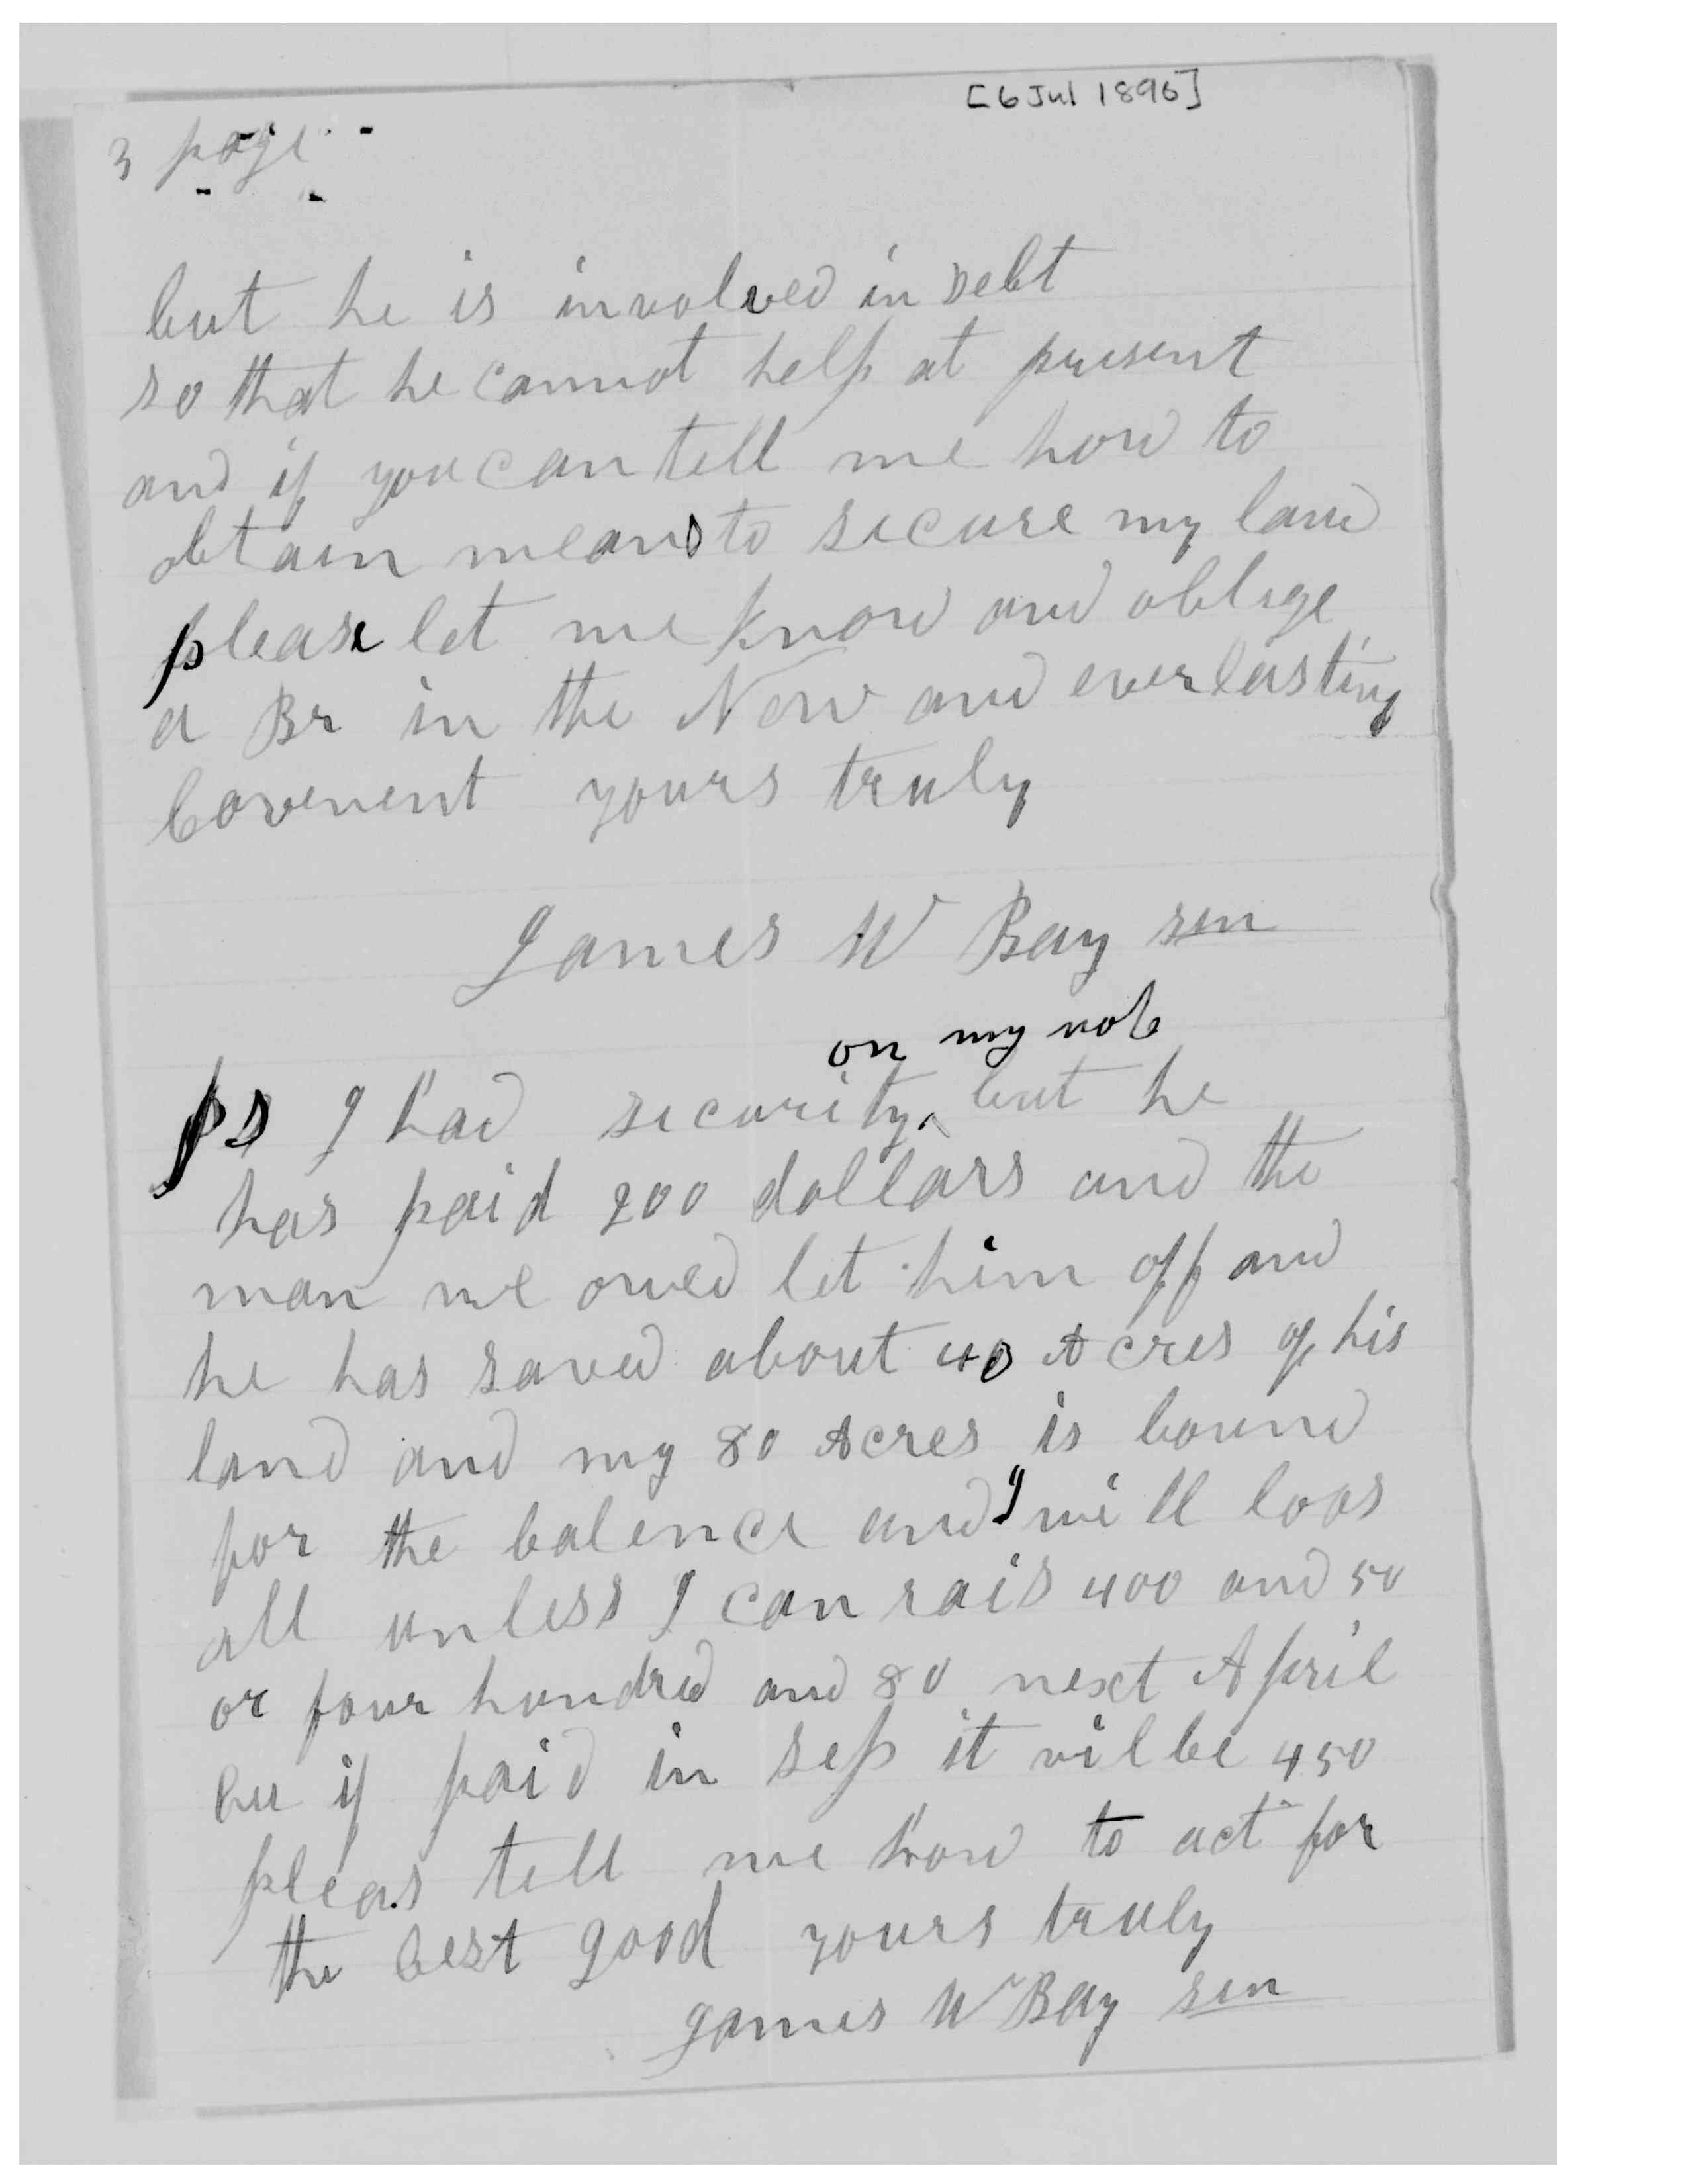 [6 Jul 1896]
3 page
but he is involved in debt
so that he cannot help at present
and if you can tell me how to
obtain means to secure my land
please let me know and oblige
a Br in the New and everlasting
Covenent yours truly
James W Bay sen
on my note
PS I had security ^ but he
has paid 200 dollars and the
man we owed let him off and
he has saved about 40 Acres of his
land and my 80 Acres is bound
for the balence and I will loos
all unless I can rais 400 and 50
or four hundred and 80 next April
bu if paid in sep it wil be 450
pleas tell me how to act for
the best good yours truly
James W Bay sen